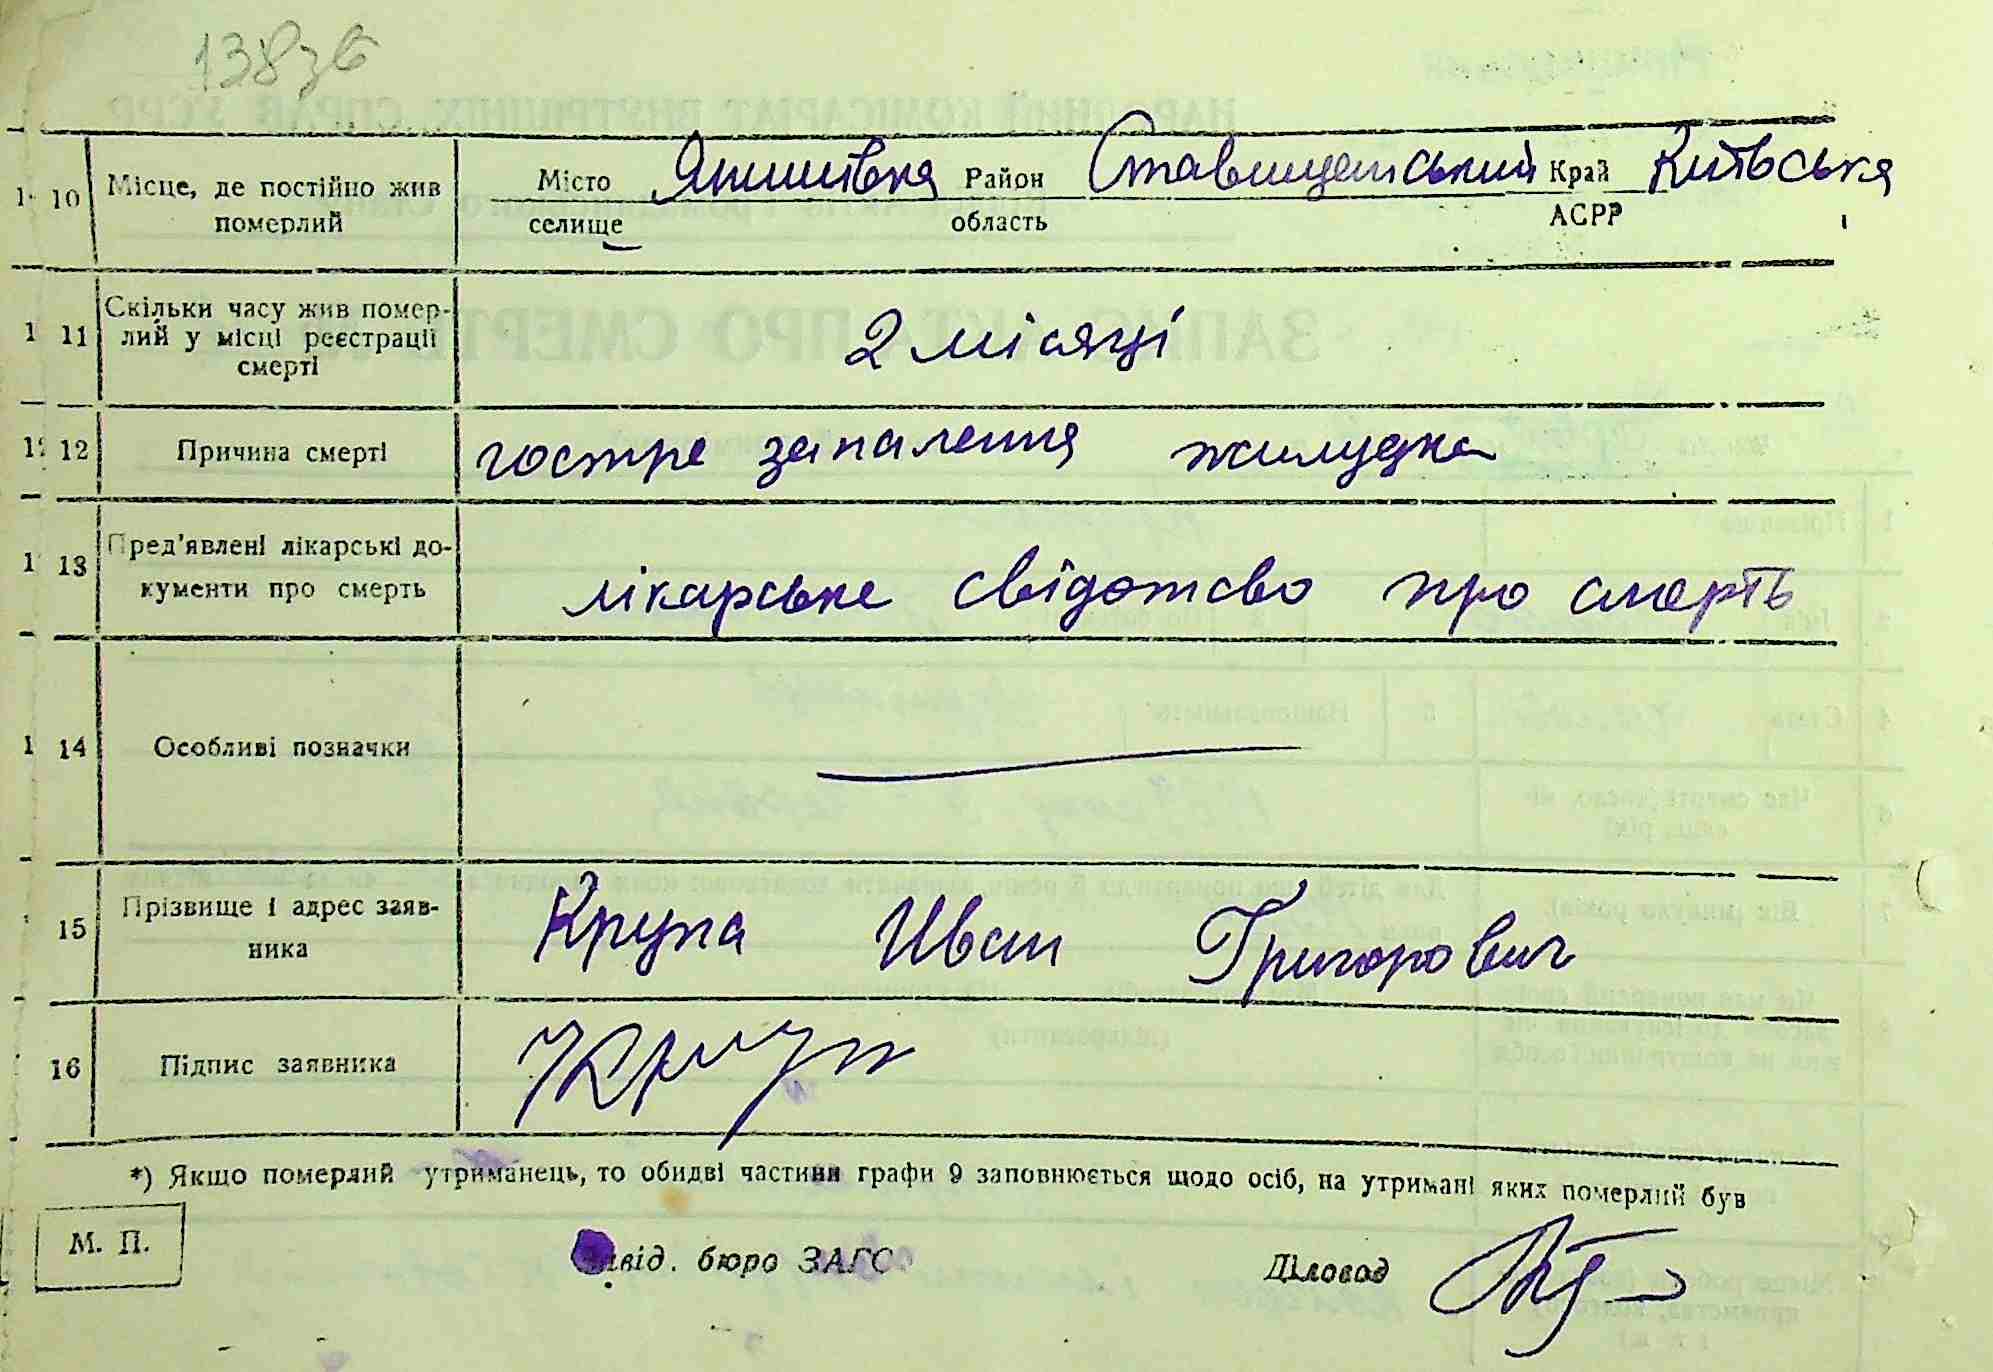 138зб
10 Місце, де постійно жив померлий Місто селище Район область Ставищенський Край АСРР Київська
11 Скільки часу жив помер-
лий у місці реєстрації
смерті 2 місяці
12 Причина смерті гостре запалення жилудка
13 Пред'явлені лікарські до-
кументи про смерть лікарське свідотсво про смерть
14 Особливі позначки
15 Прізвище і адрес заяв-
ника Крупа Иван Григорович
16 Підпис заявника Круп
*) Якщо померлий утриманець, то обидві частини графи 9 заповнюється щодо осіб, на утримані яких померлий був
М. П. Завід. бюро ЗАГС Діловод